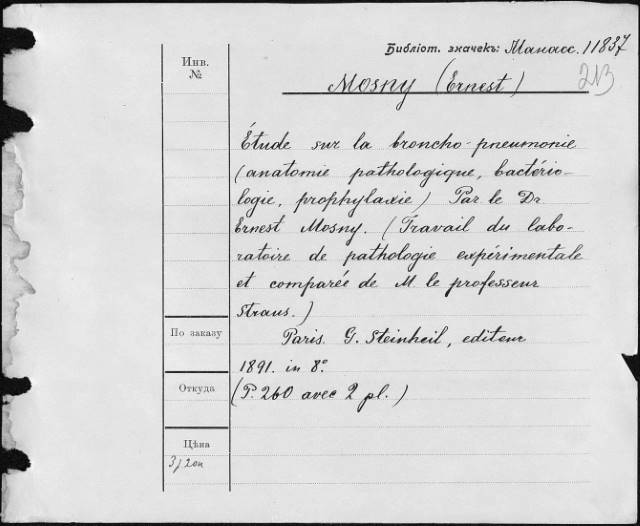 Библіот. значекъ: Манасс. 11837
Инв.
№
213
Mosny (Ernest)
Étude sur la broncho-pneumonie
(anatomie pathologique, bactério-
logie, prophylaxie) Par le Dr
Ernest Mosny. (Travail du labo-
ratoire de pathologie expérimentale
et comparée de M. le professeur
Straus.)
По заказу
Paris. G. Steinheil, editeur
1891. in 8º
Откуда
(P. 260 avec 2 pl.)
Цѣна